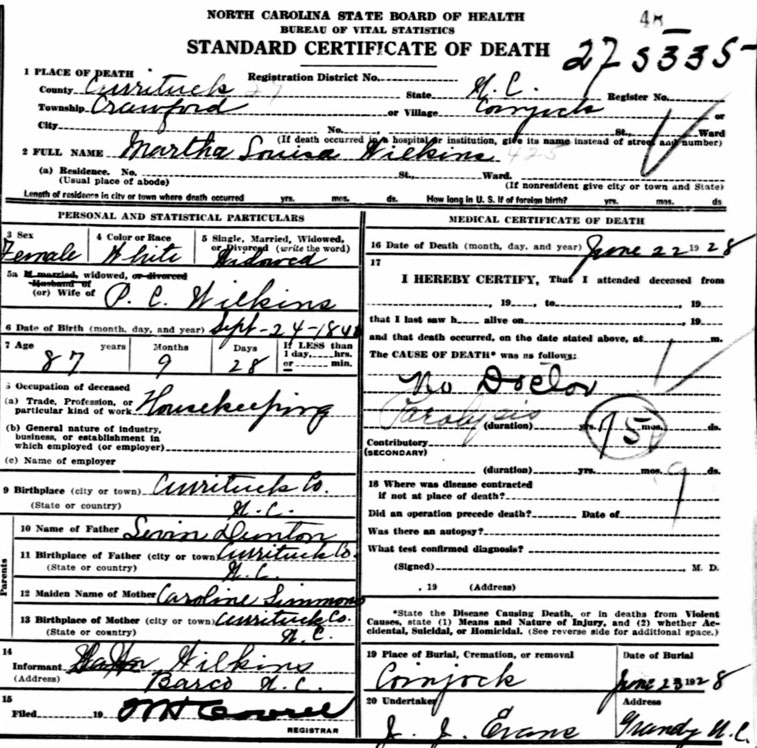 48
NORTH CAROLINA STATE BOARD OF HEALTH
BUREAU OF VITAL STATISTICS
STANDARD CERTIFICATE OF DEATH
275335
1 PLACE OF DEATH Registration District No.
County Currituck 27 State N. C. Register No.
Township Crawford or Village Coinjock or
City No. St., Ward
(If death occurred in a hospital or institution, give its name instead of street and number)
2 FULL NAME Martha Louisa Wilkins 425
(a) Residence. No. St., Ward.
(Usual place of abode) (If nonresident give city or town and State)
Length of residence in city or town where death occurred yrs. mos. ds. How long in U. S. if of foreign birth? yrs. mos. ds.
PERSONAL AND STATISTICAL PARTICULARS
3 Sex 4 Color or Race 5 Single, Married, Widowed, or Divorced (write the word)
Female White Widowed
5a If married, widowed, or divorced
Husband of
(or) Wife of P. C. Wilkins
6 Date of Birth (month, day, and year) Sept-24-184
7 Age years Months Days If LESS than
1 day, hrs.
or min.
87 9 28
8 Occupation of deceased
(a) Trade, Profession, or
particular kind of work Housekeeping
(b) General nature of industry,
business, or establishment in
which employed (or employer)
(c) Name of employer
9 Birthplace (city or town) Currituck Co.
(State or country) N.C.
Parents
10 Name of Father Levin Dunton
11 Birthplace of Father (city or town) Currituck Co.
(State or country) N.C.
12 Maiden Name of Mother Caroline Simmons
13 Birthplace of Mother (city or town) Currituck Co.
(State or country) N.C.
14
Informant Wilkins
(Address) Barco N.C.
15
Filed 19
REGISTRAR
MEDICAL CERTIFICATE OF DEATH
16 Date of Death (month, day, and year) June 22 1928
17
I HEREBY CERTIFY, That I attended deceased from
, 19 , to , 19
that I last saw h alive on , 19
and that death occurred, on the date stated above, at m.
The CAUSE OF DEATH* was as follows:
No Doctor
Paralysis
(duration) yrs. mos. ds.
75
Contributory
(SECONDARY)
(duration) yrs. mos. ds.
9
18 Where was disease contracted
if not at place of death?
Did an operation precede death? Date of
Was there an autopsy?
What test confirmed diagnosis?
(Signed) , M. D.
, 19 (Address)
*State the Disease Causing Death, or in deaths from Violent
Causes, state (1) Means and Nature of Injury, and (2) whether Ac-
cidental, Suicidal, or Homicidal. (See reverse side for additional space.)
19 Place of Burial, Cremation, or removal Date of Burial
Coinjock June 23 1928
20 Undertaker Address
J. J. Evans Grandy N.C.